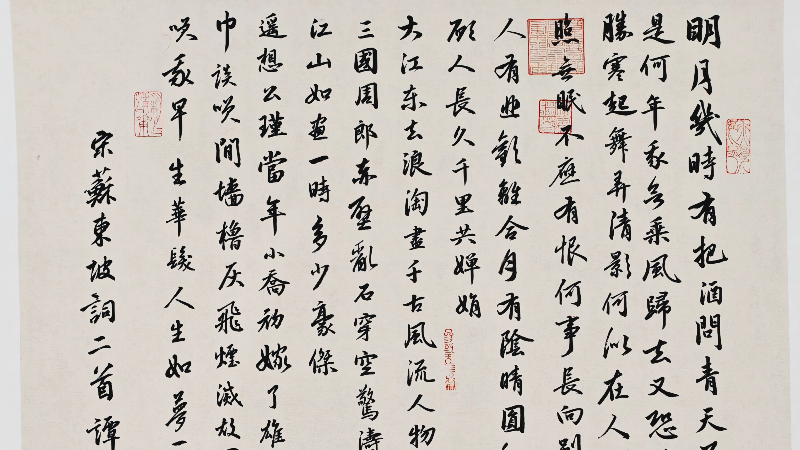 明月幾時有把酒問青天
是何年我欲乘風歸去又恐
勝寒起舞弄清影何似在人
照無眠不應有恨何事長向別
人有悲歡離合月有陰晴圓
願人長久千里共嬋娟
大江東去浪淘盡千古風流人物
三國周郎赤壁亂石穿空驚濤
江山如畫一時多少豪傑
遥想公瑾當年小喬初嫁了雄
巾談笑間檣櫓灰飛煙滅故
笑我早生華髮人生如夢一
宋蘇東坡詞二首譚